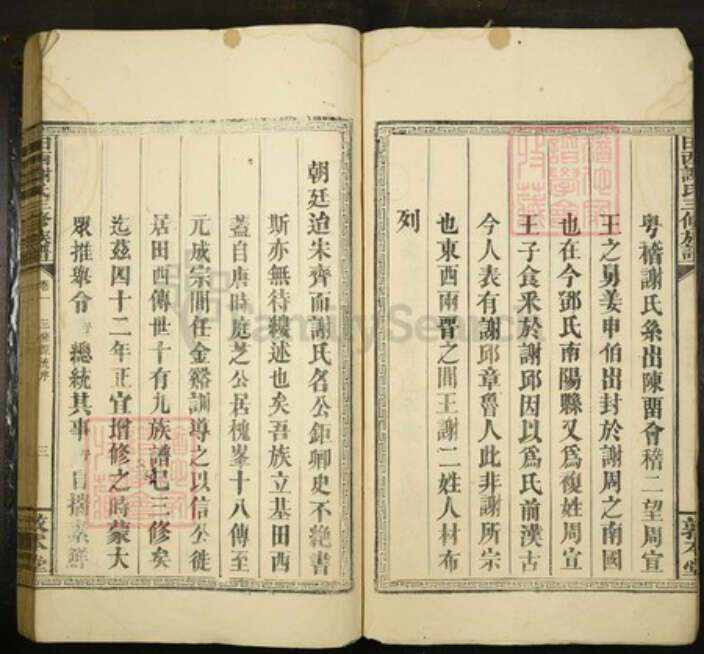 田西謝氏三修族譜
敦本堂
粵稽謝氏系出陳畱會稽二望周宣
王之舅姜申伯出封於謝周之南國
也在今鄧氏南陽縣又爲複姓周宣
王子食采於謝邱因以爲氏前漢古
今人表有謝邱章魯人此非謝所宗
也東西兩晋之間王謝二姓人材布
列
朝廷迨朱齊而謝氏名公鉅卿史不絶書
斯亦無待縷述也矣吾族立基田西
蓋自唐時庭芝公居槐峯十八傳至
元成宗間任金谿訓導之以信公徙
居田西傳世十有九族譜巳三修矣
迄茲四十二年正宜增修之時蒙大
眾推舉令予總統其事予自揣素鮮
田西謝氏三修族譜
卷一
三
敦本堂
FamilySearch